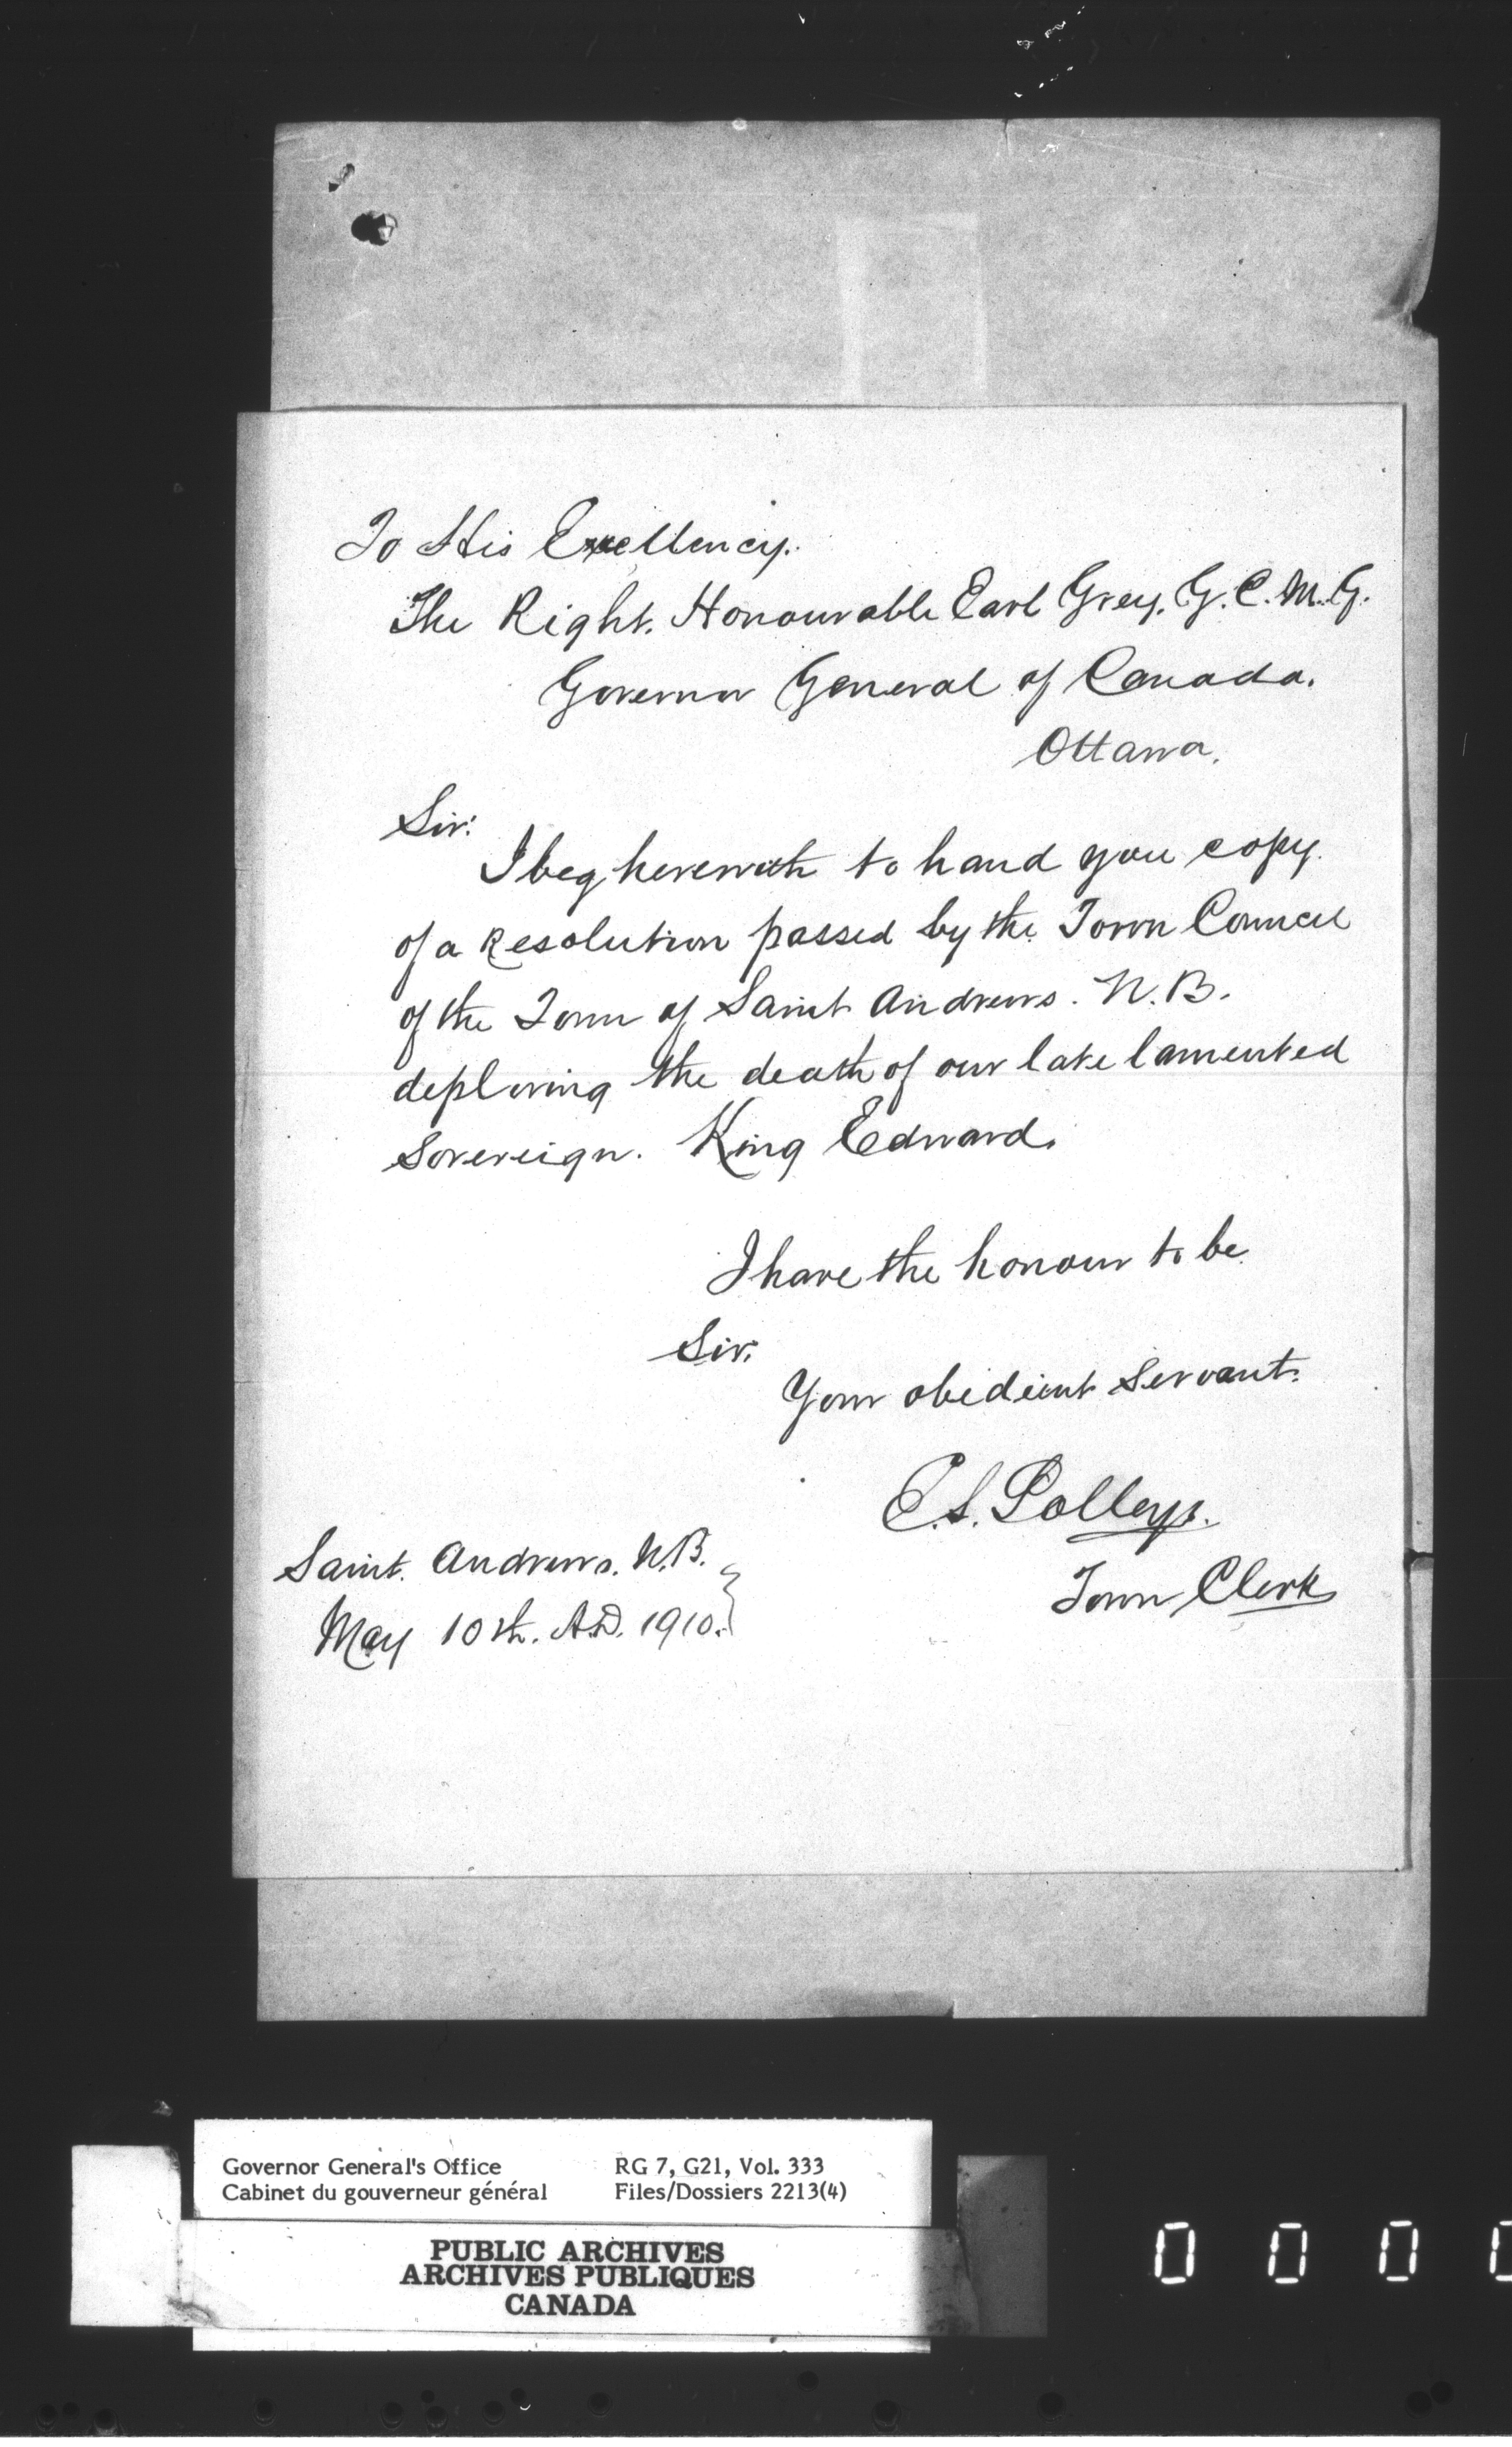 To His Excellency.
The Right. Honourable Earl Grey. G.C.M.G.
Governor General of Canada.
Ottawa.
Sir:
I beg herewith to hand you copy
of a Resolution passed by the Town Council
of the Town of Saint Andrews. N.B.
deploring the death of our late lamented
Sovereign. King Edward.
I have the honour to be
Sir.
Your obedient Servant.
E.S. Polleys.
Town Clerk
Saint. Andrews. N.B.
May 10th. A.D. 1910.
Governor General's Office RG 7, G21, Vol. 333
Cabinet du gouverneur général Files/Dossiers 2213(4)
PUBLIC ARCHIVES
ARCHIVES PUBLIQUES
CANADA
0 0 0